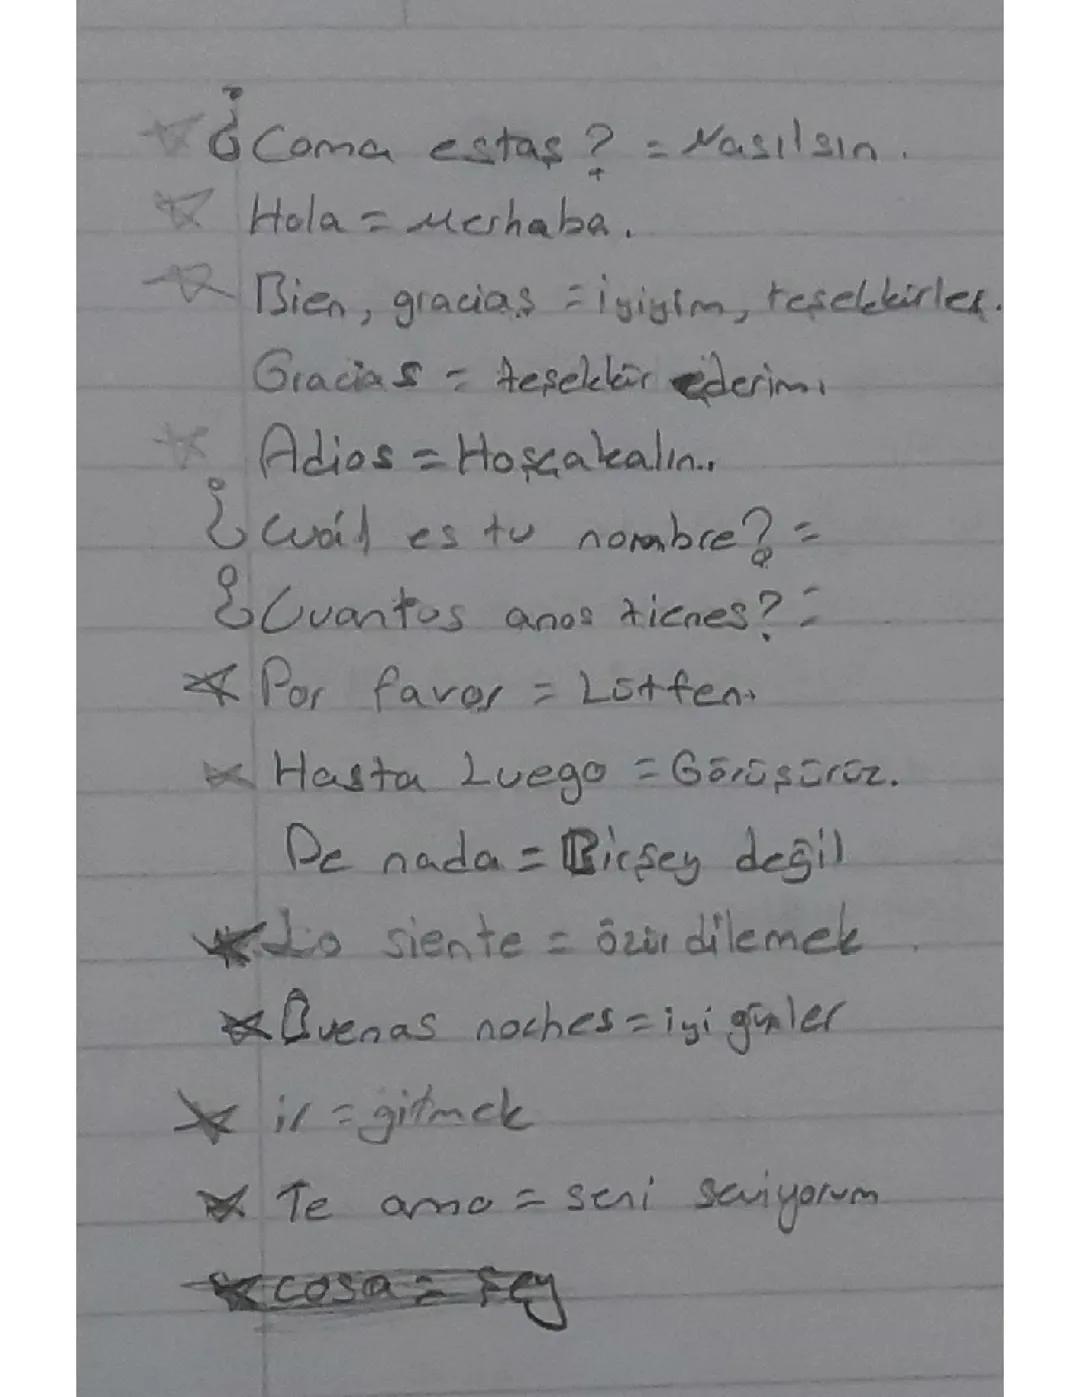 ¿Coma estas? = Nasılsın.
Hola = Merhaba.
Bien, gracias = iyiyim, teşekkürler.
Gracias = teşekkür ederim.
Adios = Hoşçakalın..
¿Cuál es tu nombre? =
¿Cuantos anos tienes? =
Por favor = Lütfen.
Hasta Luego = Görüşürüz.
De nada = Birşey değil
Lo siente = özür dilemek
Buenas noches = iyi günler
ir = gitmek
Te amo = seni seviyorum
cosa = şey